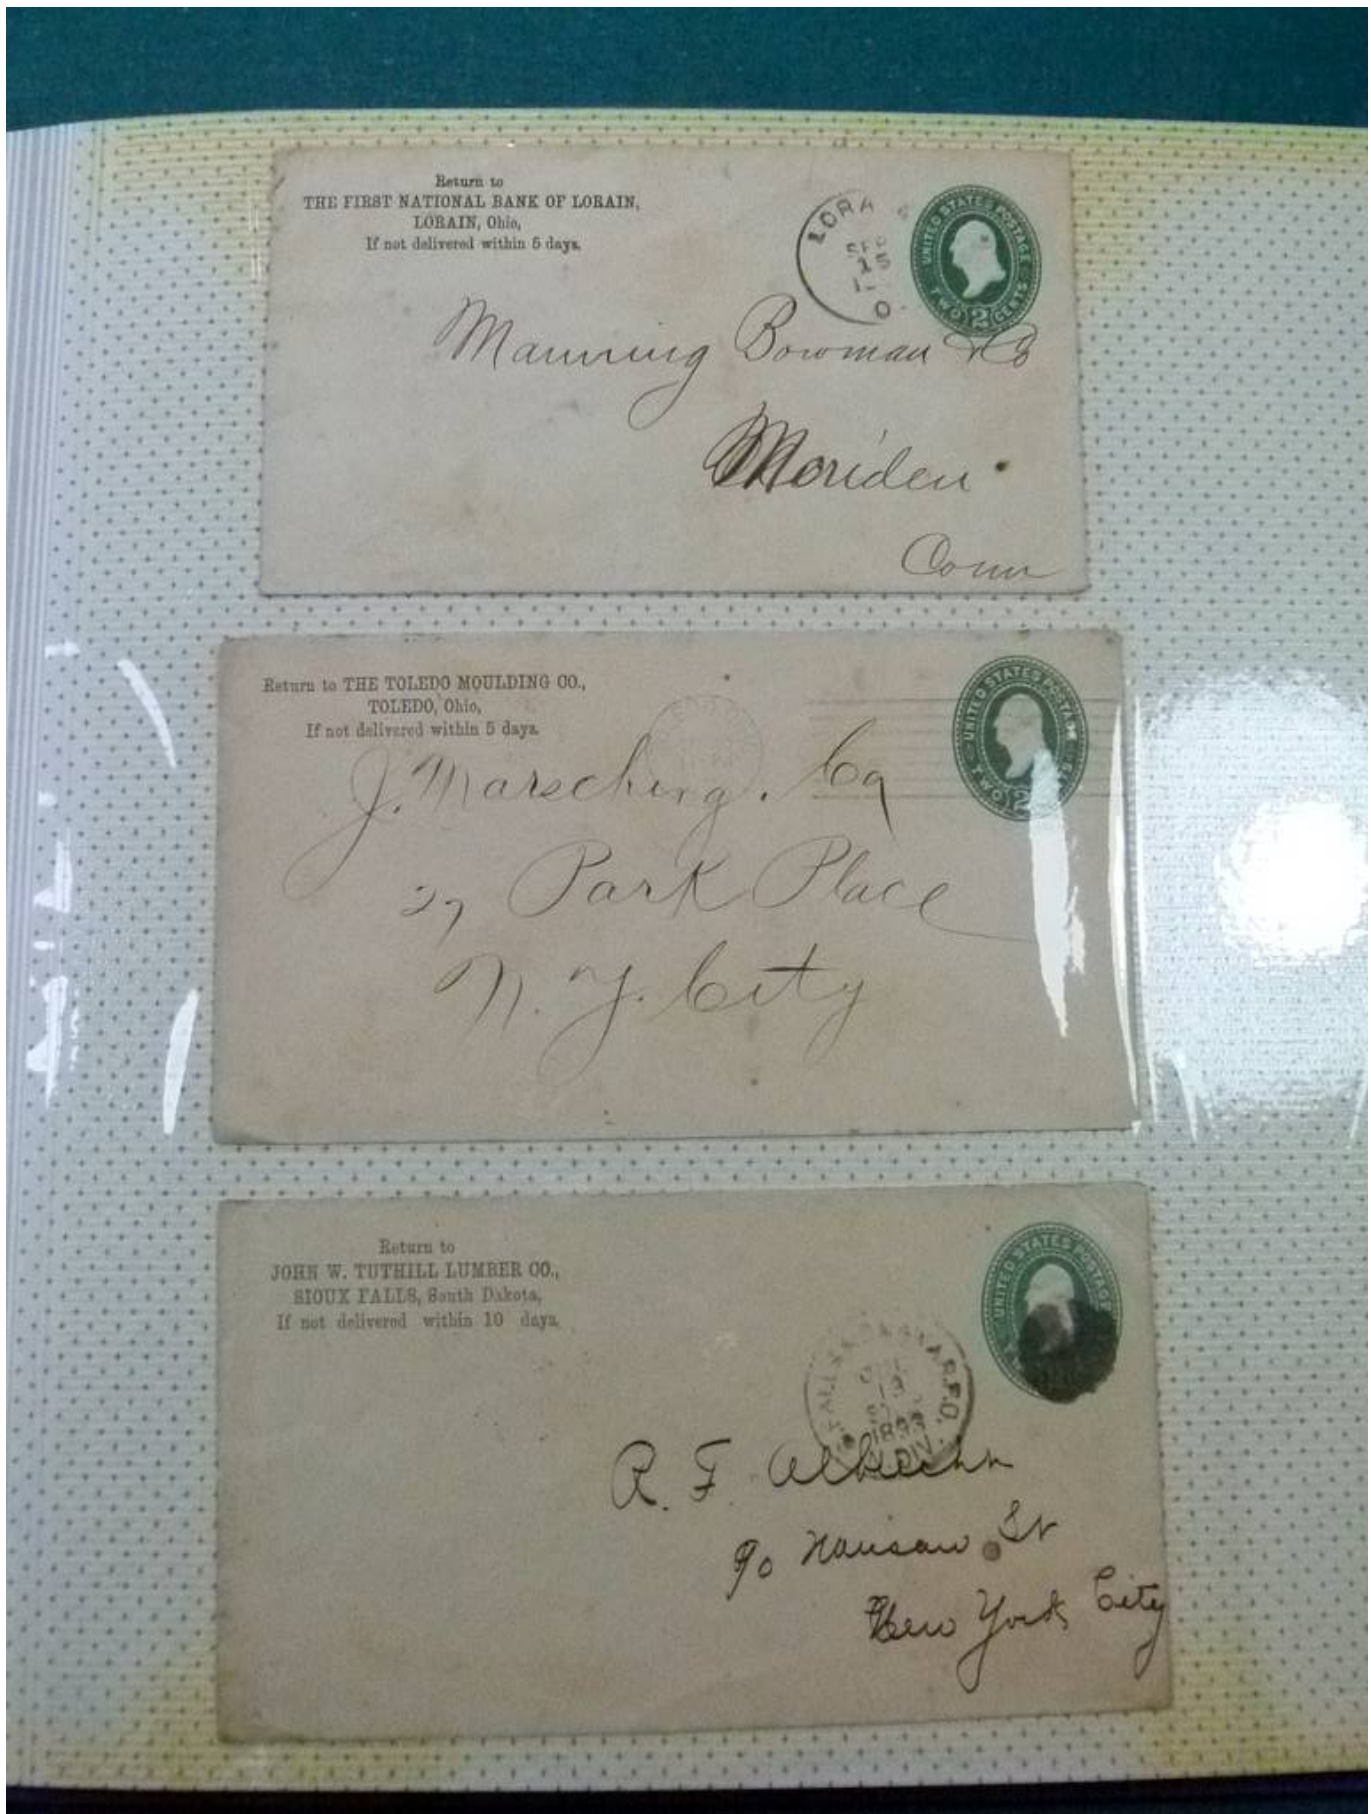 Return to
THE FIRST NATIONAL BANK OF LORAIN,
LORAIN, Ohio,
If not delivered within 5 days.
LORA
SEP
15
O
UNITED STATES POSTAGE
TWO 2 CENTS
Manning Bowman & Co
Meriden
Conn
Return to THE TOLEDO MOULDING CO.,
TOLEDO, Ohio,
If not delivered within 5 days.
UNITED STATES POSTAGE
TWO 2
J. Marsching. Co
27 Park Place
N. Y. City
Return to
JOHN W. TUTHILL LUMBER CO.,
SIOUX FALLS, South Dakota,
If not delivered within 10 days.
UNITED STATES POSTAGE
FALLS
R.P.O.
1893
DIV.
R. F.
90 Nausau St
New York City